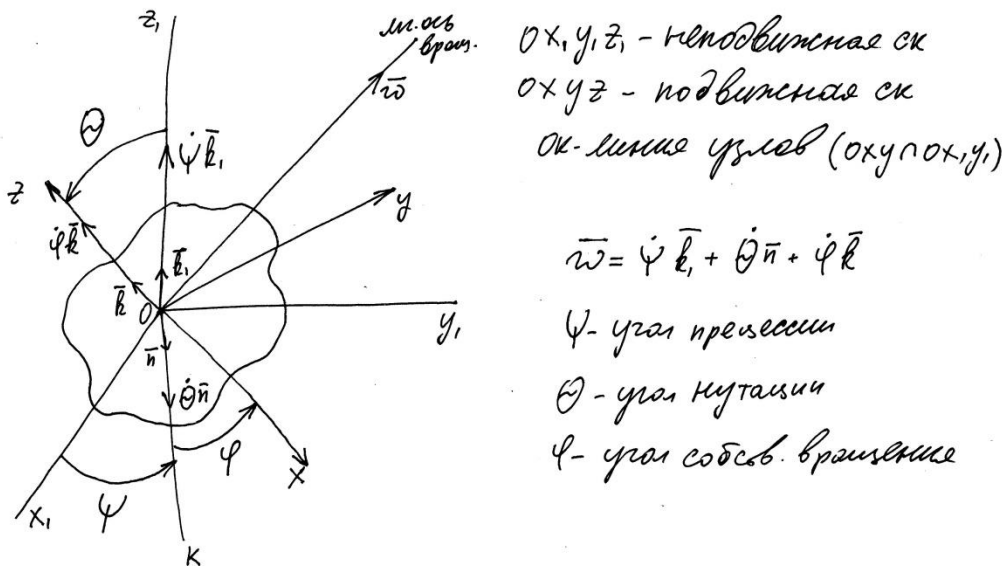 z₁
мг. ось
вращ.
ω̄
Θ
ψ̇ k̄₁
z
φ̇ k̄
y
k̄₁
k̄
O
y₁
n̄
Θ̇ n̄
φ
x
ψ
x₁
K
Ox₁y₁z₁ - неподвижная ск
Oxyz - подвижная ск
OK - линия узлов (Oxy∩Ox₁y₁)
ω̄ = ψ̇ k̄₁ + Θ̇ n̄ + φ̇ k̄
ψ - угол прецессии
Θ - угол нутации
φ - угол собсв. вращения